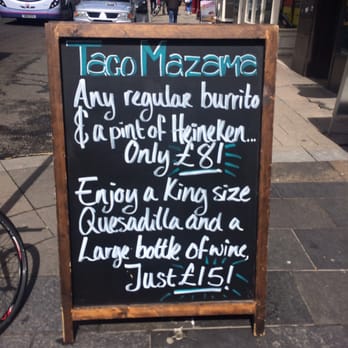 Taco Mazama
Any regular burrito
& a pint of Heineken...
Only £8!
Enjoy a King size
Quesadilla and a
Large bottle of wine,
Just £15!